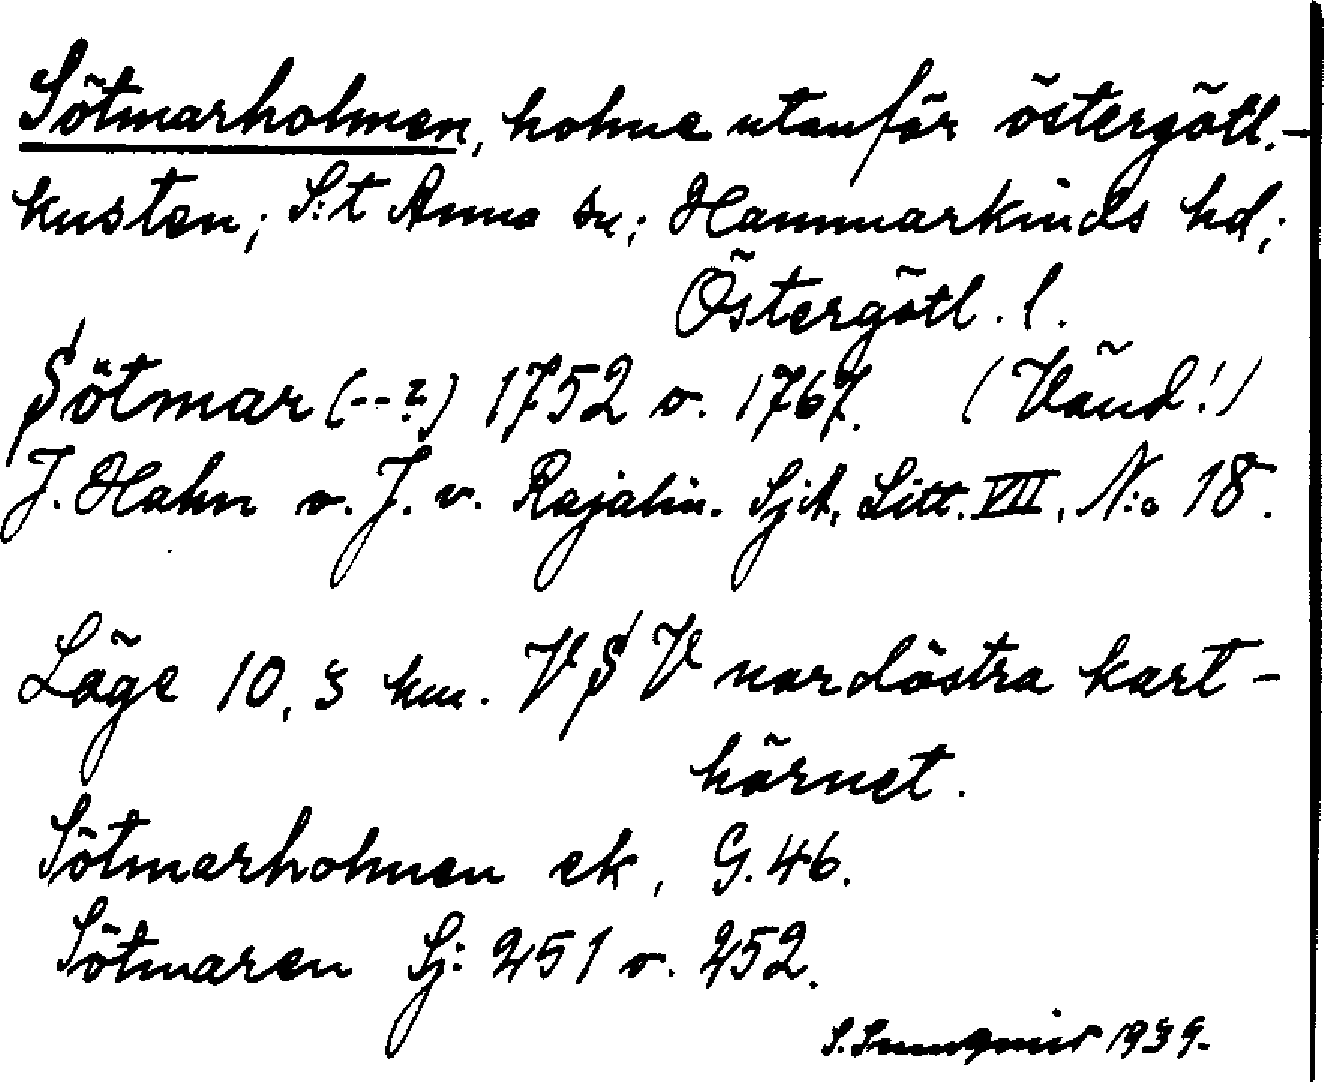 Sötmarholmen, holme utanför östergötl.-
kusten; S:t Anna sn; Hammarkinds hd;
Östergötl. l.
Sötmar (--?) 1752 o. 1767. (Vänd!)
J. Hahn o. J. v. Rajalin. SjA, Litt. VII, N:o 18.
Läge 10,3 km. VSV nordöstra kart-
hörnet.
Sötmarholmen ek, G.46.
Sötmaren Sj: 251 o. 252.
S. 1939.